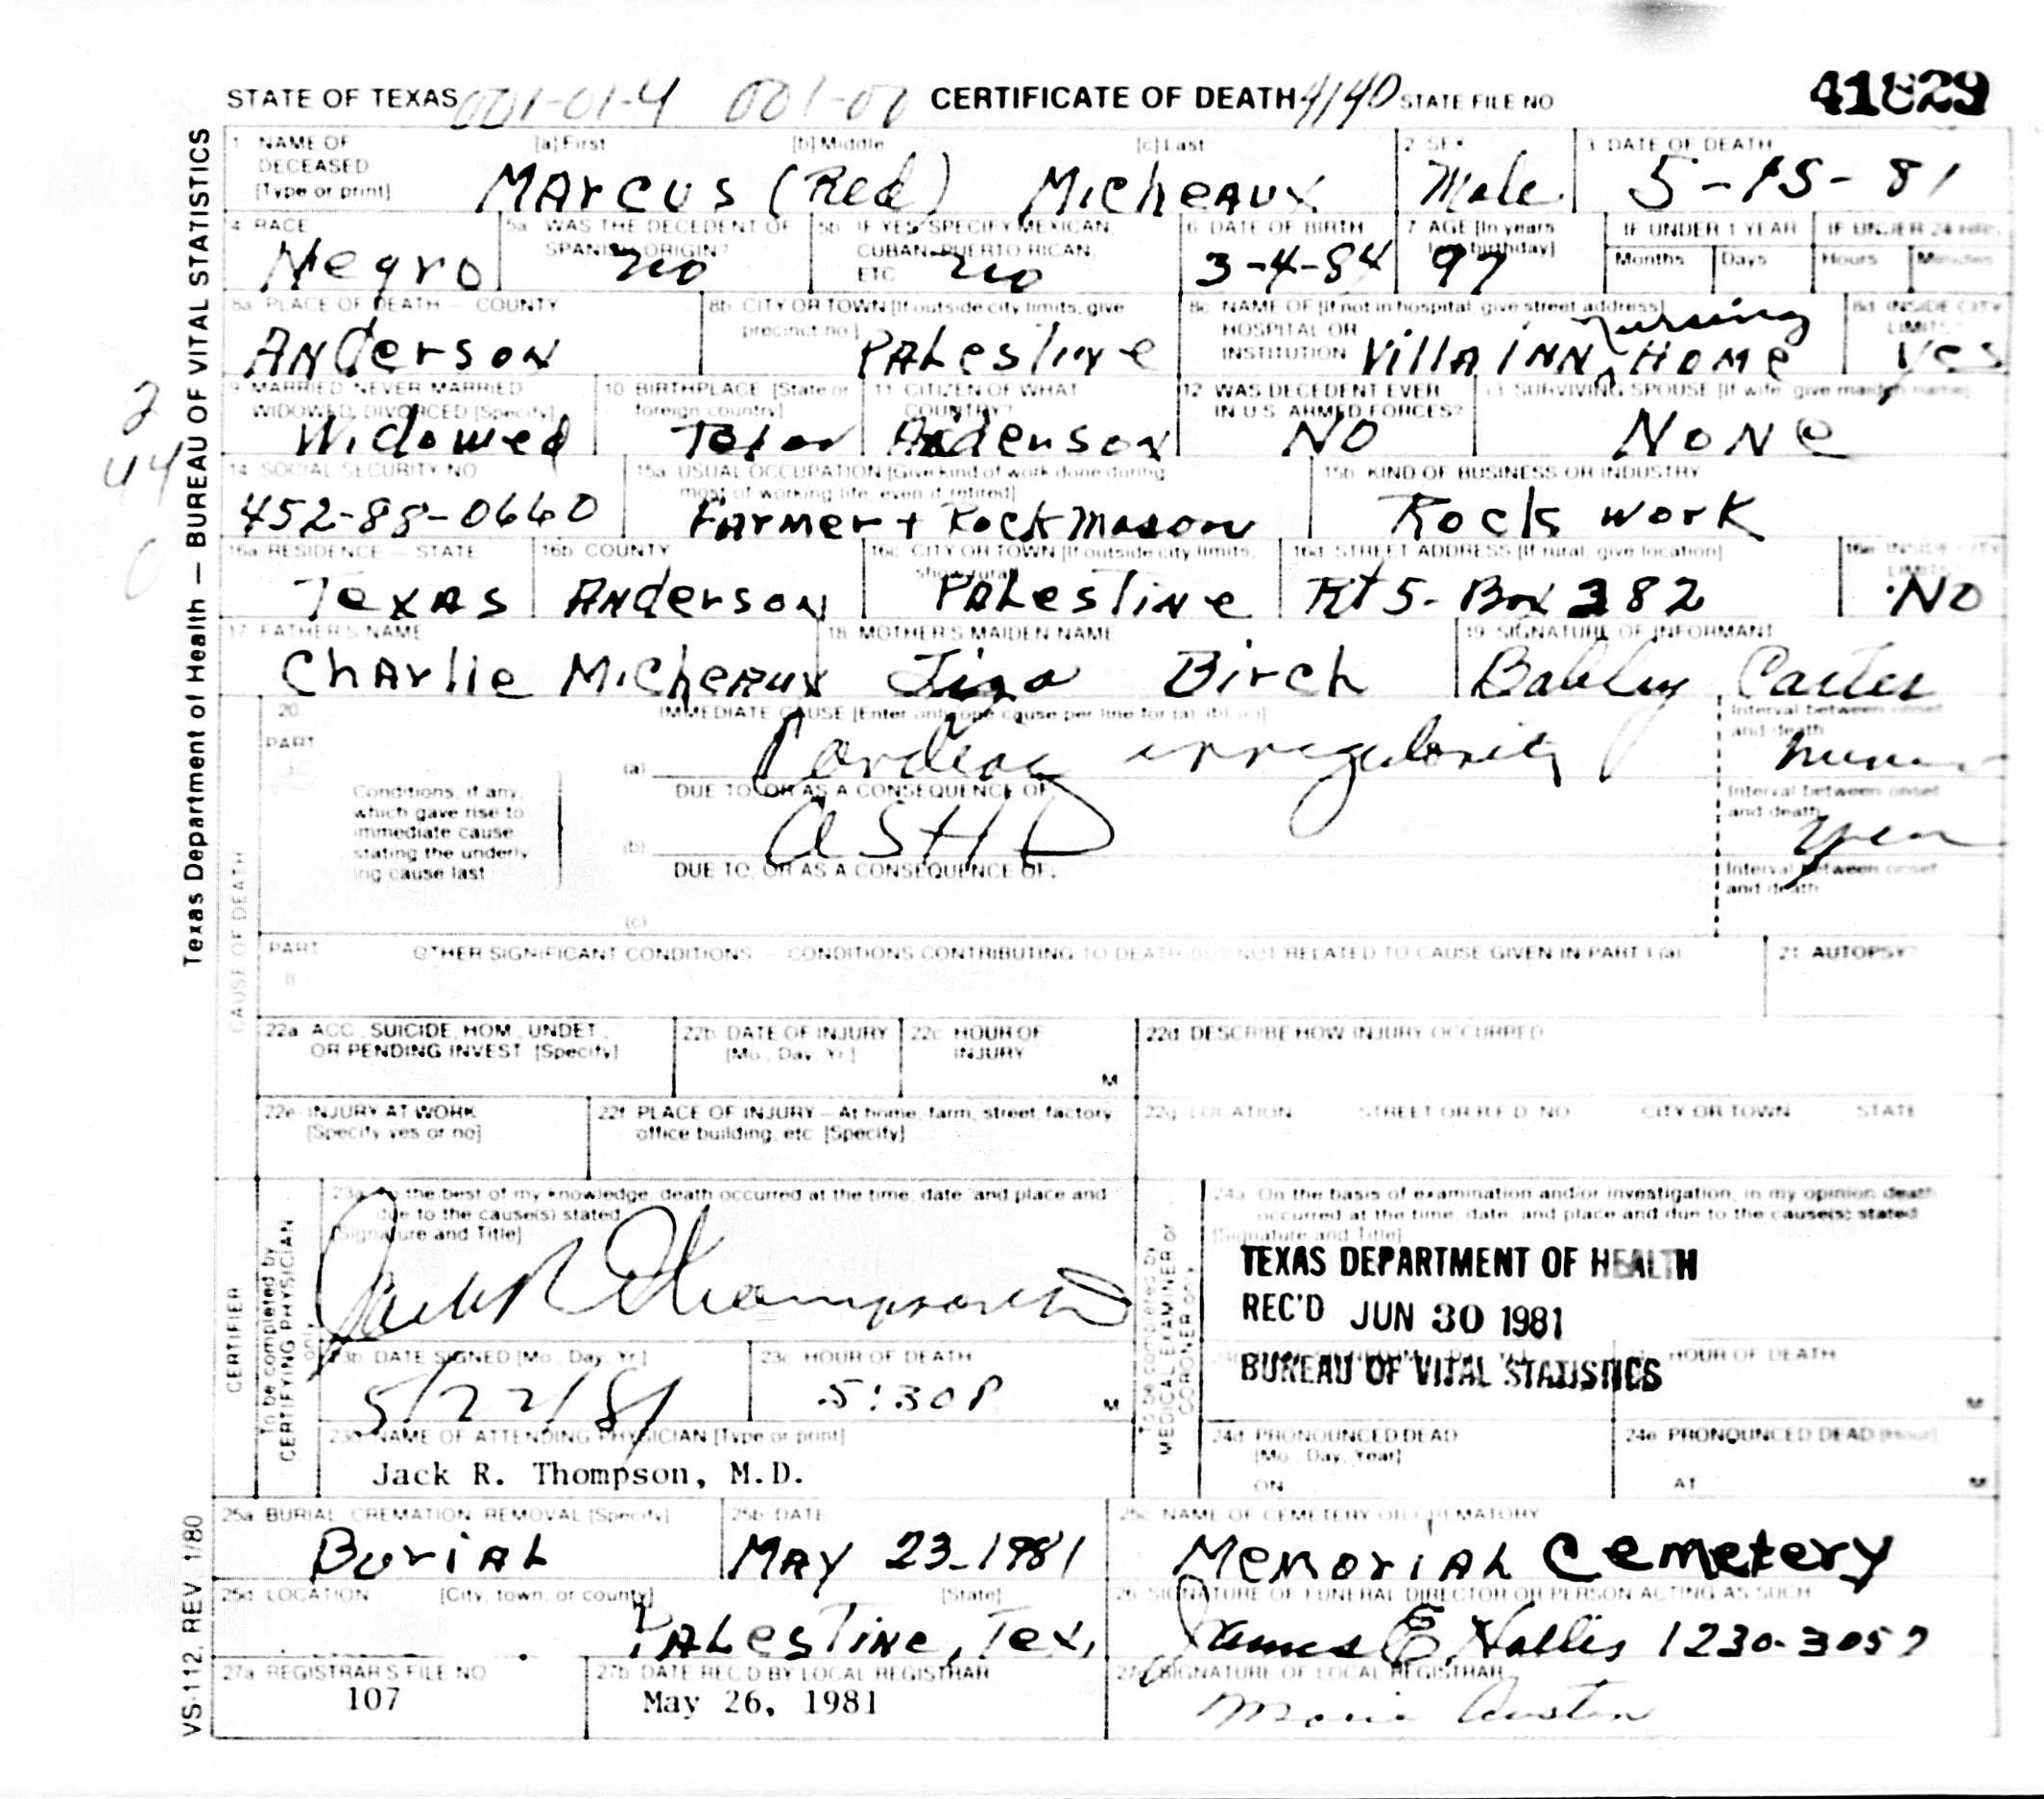 STATE OF TEXAS 001-01-4 001-00 CERTIFICATE OF DEATH 4140 STATE FILE NO 41829
Texas Department of Health — BUREAU OF VITAL STATISTICS
1 NAME OF DECEASED [Type or print] [a] First [b] Middle [c] Last
MArcus (Red) Micheaux
2 SEX
Male
3 DATE OF DEATH
5-15-81
4 RACE
Negro
5a WAS THE DECEDENT OF SPANISH ORIGIN?
no
5b IF YES, SPECIFY MEXICAN, CUBAN, PUERTO RICAN, ETC
no
6 DATE OF BIRTH
3-4-84
7 AGE [In years last birthday]
97
IF UNDER 1 YEAR
Months Days
IF UNDER 24 HRS
Hours Minutes
8a PLACE OF DEATH — COUNTY
ANderson
8b CITY OR TOWN [If outside city limits, give precinct no]
PALestine
8c NAME OF [If not in hospital, give street address] HOSPITAL OR INSTITUTION
Villa INN Nursing Home
8d INSIDE CITY LIMITS
Yes
2
44
0
9 MARRIED, NEVER MARRIED WIDOWED, DIVORCED [Specify]
Widowed
10 BIRTHPLACE [State or foreign country]
11 CITIZEN OF WHAT COUNTRY?
Anderson
12 WAS DECEDENT EVER IN U.S. ARMED FORCES?
NO
13 SURVIVING SPOUSE [If wife, give maiden name]
NONe
14 SOCIAL SECURITY NO
452-88-0660
15a USUAL OCCUPATION [Give kind of work done during most of working life, even if retired]
Farmer + Rock Mason
15b KIND OF BUSINESS OR INDUSTRY
Rock work
16a RESIDENCE — STATE
Texas
16b COUNTY
ANderson
16c CITY OR TOWN [If outside city limits, show rural]
PALestine
16d STREET ADDRESS [If rural, give location]
Rt 5- Box 382
16e INSIDE CITY LIMITS
NO
17 FATHER'S NAME
Charlie Micheaux
18 MOTHER'S MAIDEN NAME
Birch
19 SIGNATURE OF INFORMANT
Carter
CAUSE OF DEATH
20 PART
IMMEDIATE CAUSE [Enter only one cause per line for (a), (b), (c)]
(a) Cardiac irregularity
Interval between onset and death
Conditions, if any, which gave rise to immediate cause stating the underlying cause last
DUE TO, OR AS A CONSEQUENCE OF
(b) ASHD
Interval between onset and death
DUE TO, OR AS A CONSEQUENCE OF.
(c)
Interval between onset and death
PART II OTHER SIGNIFICANT CONDITIONS — CONDITIONS CONTRIBUTING TO DEATH BUT NOT RELATED TO CAUSE GIVEN IN PART I (a)
21 AUTOPSY?
22a ACC, SUICIDE, HOM, UNDET, OR PENDING INVEST [Specify]
22b DATE OF INJURY [Mo, Day, Yr]
22c HOUR OF INJURY
M
22d DESCRIBE HOW INJURY OCCURRED
22e INJURY AT WORK [Specify yes or no]
22f PLACE OF INJURY — At home, farm, street, factory, office building, etc [Specify]
22g LOCATION STREET OR R.F.D. NO CITY OR TOWN STATE
CERTIFIER
To be completed by CERTIFYING PHYSICIAN only
23a To the best of my knowledge, death occurred at the time, date, and place and due to the cause(s) stated
[Signature and Title]
Jack R Thompson MD
23b DATE SIGNED [Mo, Day, Yr]
5/22/81
23c HOUR OF DEATH
5:30P M
23d NAME OF ATTENDING PHYSICIAN [Type or print]
Jack R. Thompson, M.D.
To be completed by MEDICAL EXAMINER or CORONER only
24a On the basis of examination and/or investigation, in my opinion death occurred at the time, date, and place and due to the cause(s) stated
[Signature and Title]
TEXAS DEPARTMENT OF HEALTH
REC'D JUN 30 1981
BUREAU OF VITAL STATISTICS
HOUR OF DEATH
M
24d PRONOUNCED DEAD [Mo, Day, Year]
ON
24e PRONOUNCED DEAD [Hour]
AT M
25a BURIAL, CREMATION, REMOVAL [Specify]
BuriAL
25b DATE
MAY 23-1981
25c NAME OF CEMETERY OR CREMATORY
MemoriAL Cemetery
25d LOCATION [City, town, or county] [State]
PALesTine, Tex.
26 SIGNATURE OF FUNERAL DIRECTOR OR PERSON ACTING AS SUCH
James E. 1230-3057
27a REGISTRAR'S FILE NO
107
27b DATE REC'D BY LOCAL REGISTRAR
May 26, 1981
27c SIGNATURE OF LOCAL REGISTRAR
Austin
VS-112, REV. 1/80